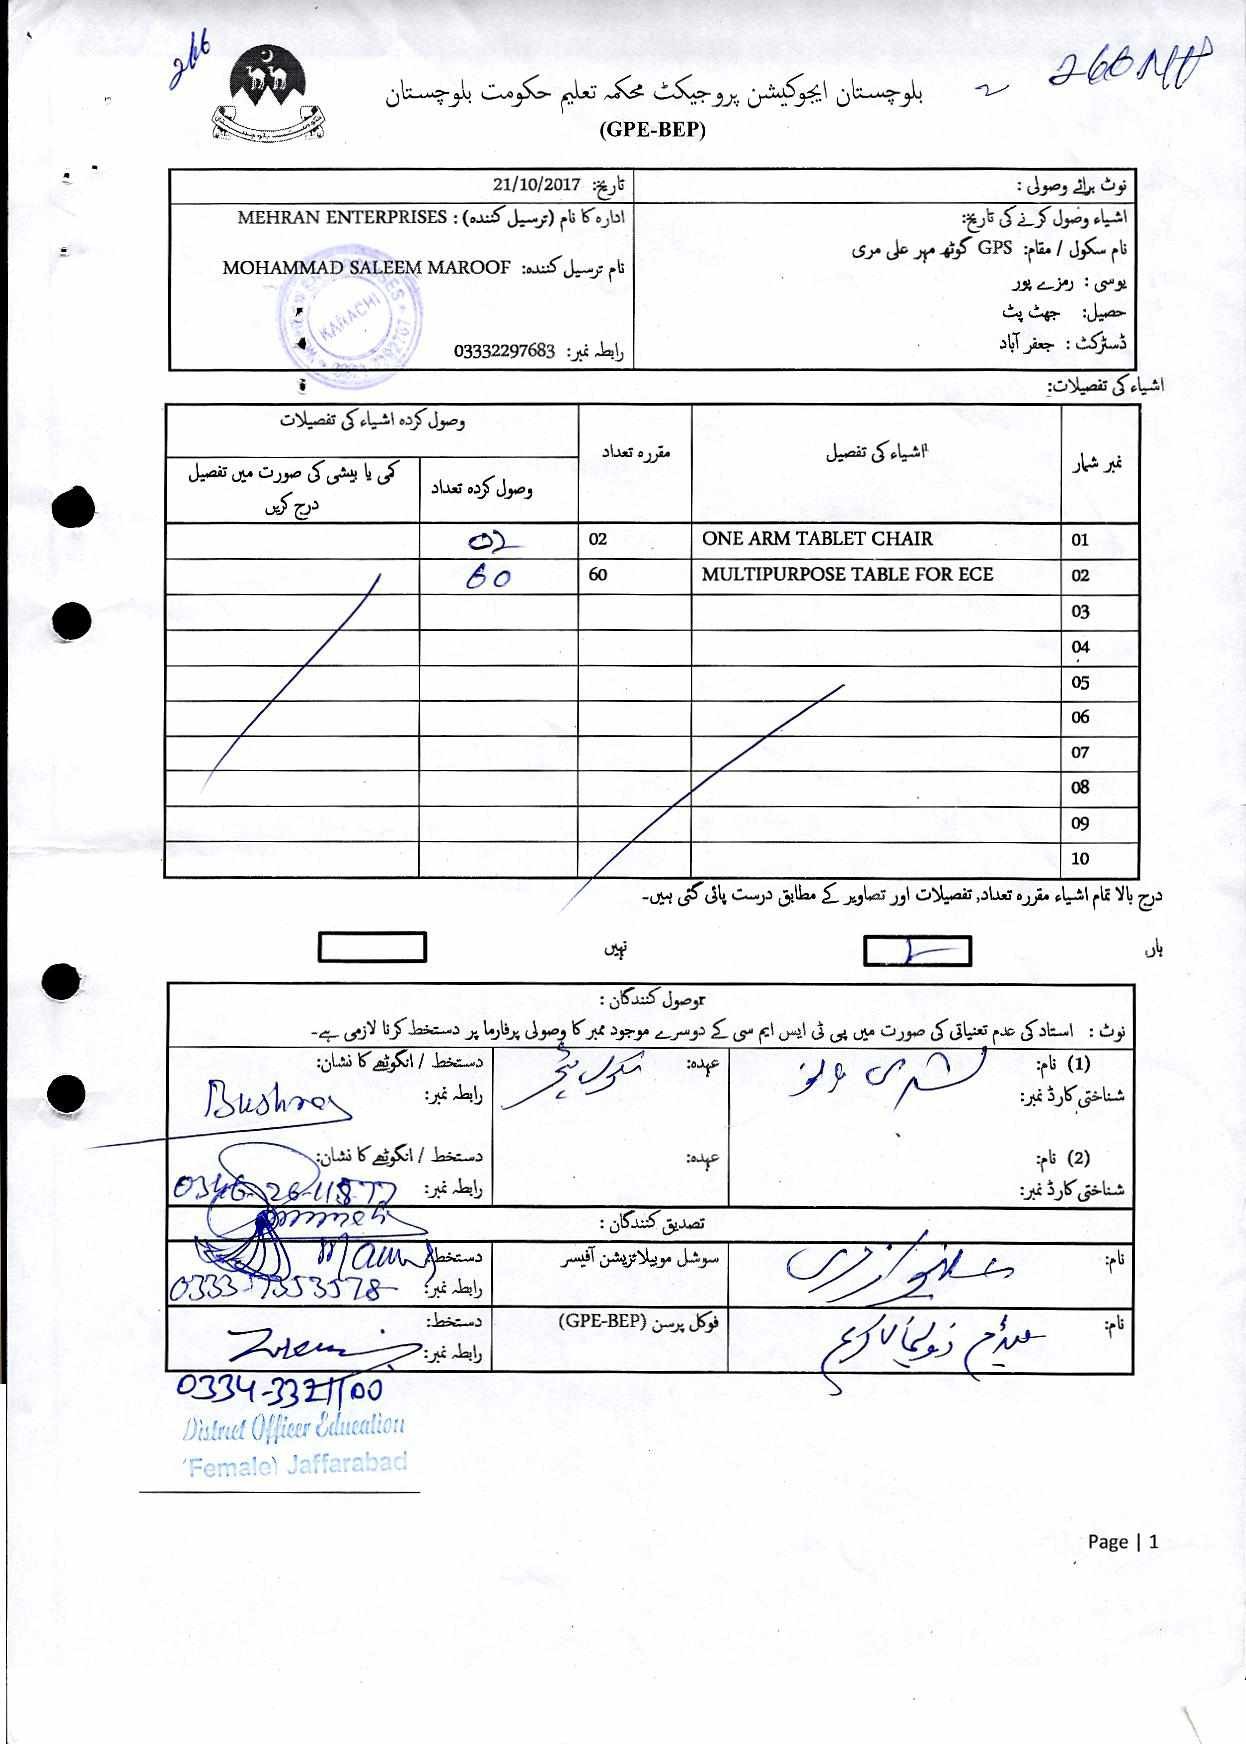 266
266
بلوچستان ایجوکیشن پروجیکٹ محکمہ تعلیم حکومت بلوچستان
(GPE-BEP)
نوٹ برائے وصولی :
تاریخ: 21/10/2017
اشیاء وضول کرنے کی تاریخ:
ادارہ کا نام (ترسیل کنندہ) : MEHRAN ENTERPRISES
نام سکول / مقام: GPS گوٹھ مہر علی مری
نام ترسیل کنندہ: MOHAMMAD SALEEM MAROOF
یوسی : رمزے پور
حصیل: جھٹ پٹ
ڈسٹرکٹ : جعفر آباد
رابطہ نمبر: 03332297683
KARACHI
اشیاء کی تفصیلات:
نمبر شمار
اشیاء کی تفصیل
مقررہ تعداد
وصول کردہ اشیاء کی تفصیلات
وصول کردہ تعداد
کمی یا بیشی کی صورت میں تفصیل درج کریں
01 ONE ARM TABLET CHAIR 02 02
02 MULTIPURPOSE TABLE FOR ECE 60 60
03
04
05
06
07
08
09
10
درج بالا تمام اشیاء مقررہ تعداد, تفصیلات اور تصاویر کے مطابق درست پائی گئی ہیں۔
ہاں
نہیں
وصول کنندگان :
نوٹ : استاد کی عدم تعنیاتی کی صورت میں پی ٹی ایس ایم سی کے دوسرے موجود ممبر کا وصولی پرفارما پر دستخط کرنا لازمی ہے۔
(1) نام:
عہدہ:
دستخط / انگوٹھے کا نشان:
شناختی کارڈ نمبر:
رابطہ نمبر:
Bushra
(2) نام:
عہدہ:
دستخط / انگوٹھے کا نشان:
شناختی کارڈ نمبر:
رابطہ نمبر:
تصدیق کنندگان :
نام:
سوشل موبیلائزیشن آفیسر
دستخط:
رابطہ نمبر:
0333-7353578
نام:
فوکل پرسن (GPE-BEP)
دستخط:
رابطہ نمبر:
District Officer Education
(Female) Jaffarabad
Page | 1